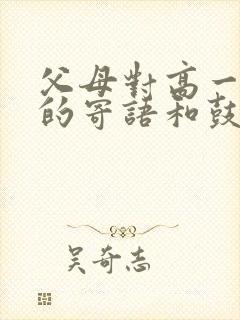 父母對高一
的寄語和鼓
吴奇志